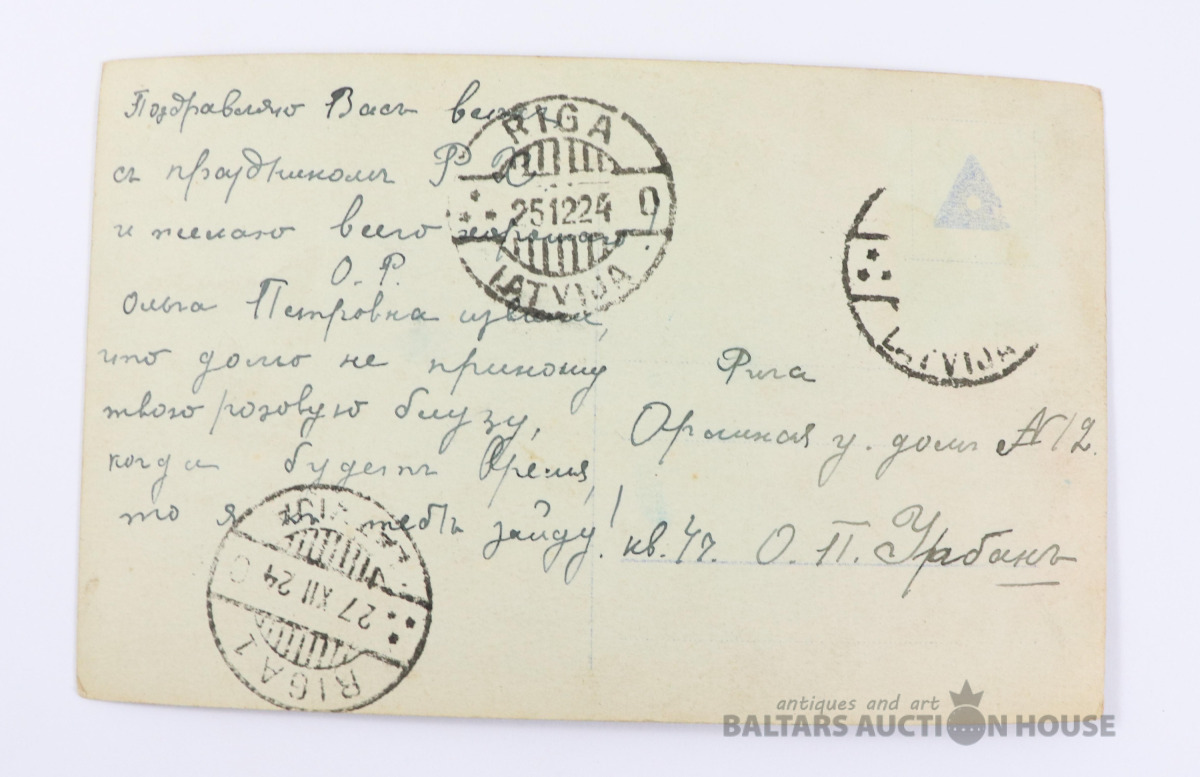 Поздравляю Васъ всѣхъ
съ праздникомъ Р Х
и желаю всего хорошаго!
О. Р.
Ольга Петровна извини,
что долго не приношу
твою розовую блузу,
когда будетъ время,
то я къ тебѣ зайду!
Рига
Орлиная у. домъ № 12.
кв. 47. О. П. Урбанъ
RIGA
251224 0
LATVIJA
LATVIJA
LATVIJA
27 XII 24
RIGA 1
antiques and art
BALTARS AUCTION HOUSE